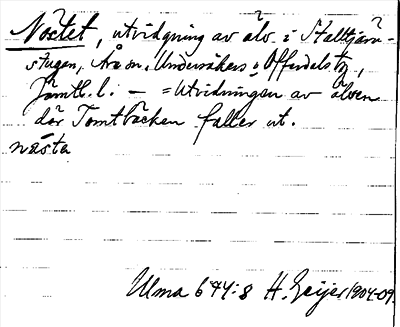 Nästet, utvidgning av älv i Stalltjärn-
stugan, Åre sn, Undersåkers o Offerdals tg,
Jämtl. l. — = Utvidningen av älven
där Tomtbäcken faller ut.
nästa
Ulma 644:8 H. Geijer 1904-09.